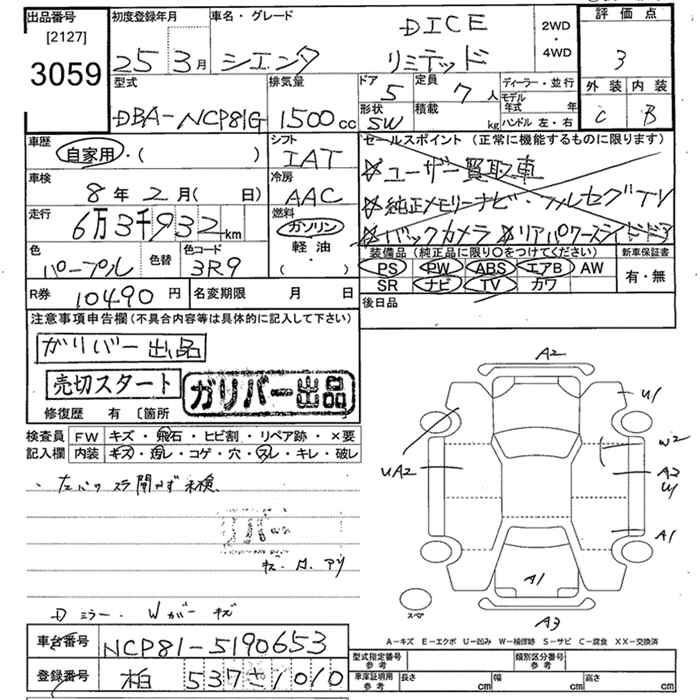 出品番号
[2127]
3059
初度登録年月
25 3月
車名・グレード
シエンタ
DICE
リミテッド
2WD
・
4WD
評価点
3
外装 内装
C B
型式
DBA-NCP81G
排気量
1500cc
ドア 5
定員 7人
形状 SW
積載 kg
ディーラー・並行
モデル年式 年
ハンドル 左・右
車歴
自家用・( )
シフト
IAT
車検
8年2月( 日)
冷房
AAC
走行
6万3千932km
燃料
ガソリン
軽油
・( )
色
パープル
色替
色コード
3R9
R券 10490円
名変期限 月 日
セールスポイント (正常に機能するものに限ります)
☆ユーザー買取車
☆純正メモリーナビ・フルセグTV
☆バックカメラ ☆リアパワースライドドア
装備品 (純正品に限り○をつけてください)
PS PW ABS エアB AW
SR ナビ TV カワ
新車保証書
有・無
後日品
注意事項申告欄(不具合内容等は具体的に記入して下さい)
ガリバー出品
売切スタート
ガリバー出品
修復歴 有 〔箇所
検査員記入欄
FW キズ・飛石・ヒビ割・リペア跡・×要
内装 キズ・汚レ・コゲ・穴・スレ・キレ・破レ
キズ
Dミラー
キズ
A2
U1
W2
A2
U1
A1
UA2
A1
A3
スペア
A-キズ E-エクボ U-凹み W-補修跡 S-サビ C-腐食 XX-交換済
車台番号
NCP81-5190653
登録番号
柏 537 さ 1010
型式指定番号
参考
類別区分番号
参考
車庫証明用
参考
長さ cm
幅 cm
高さ cm